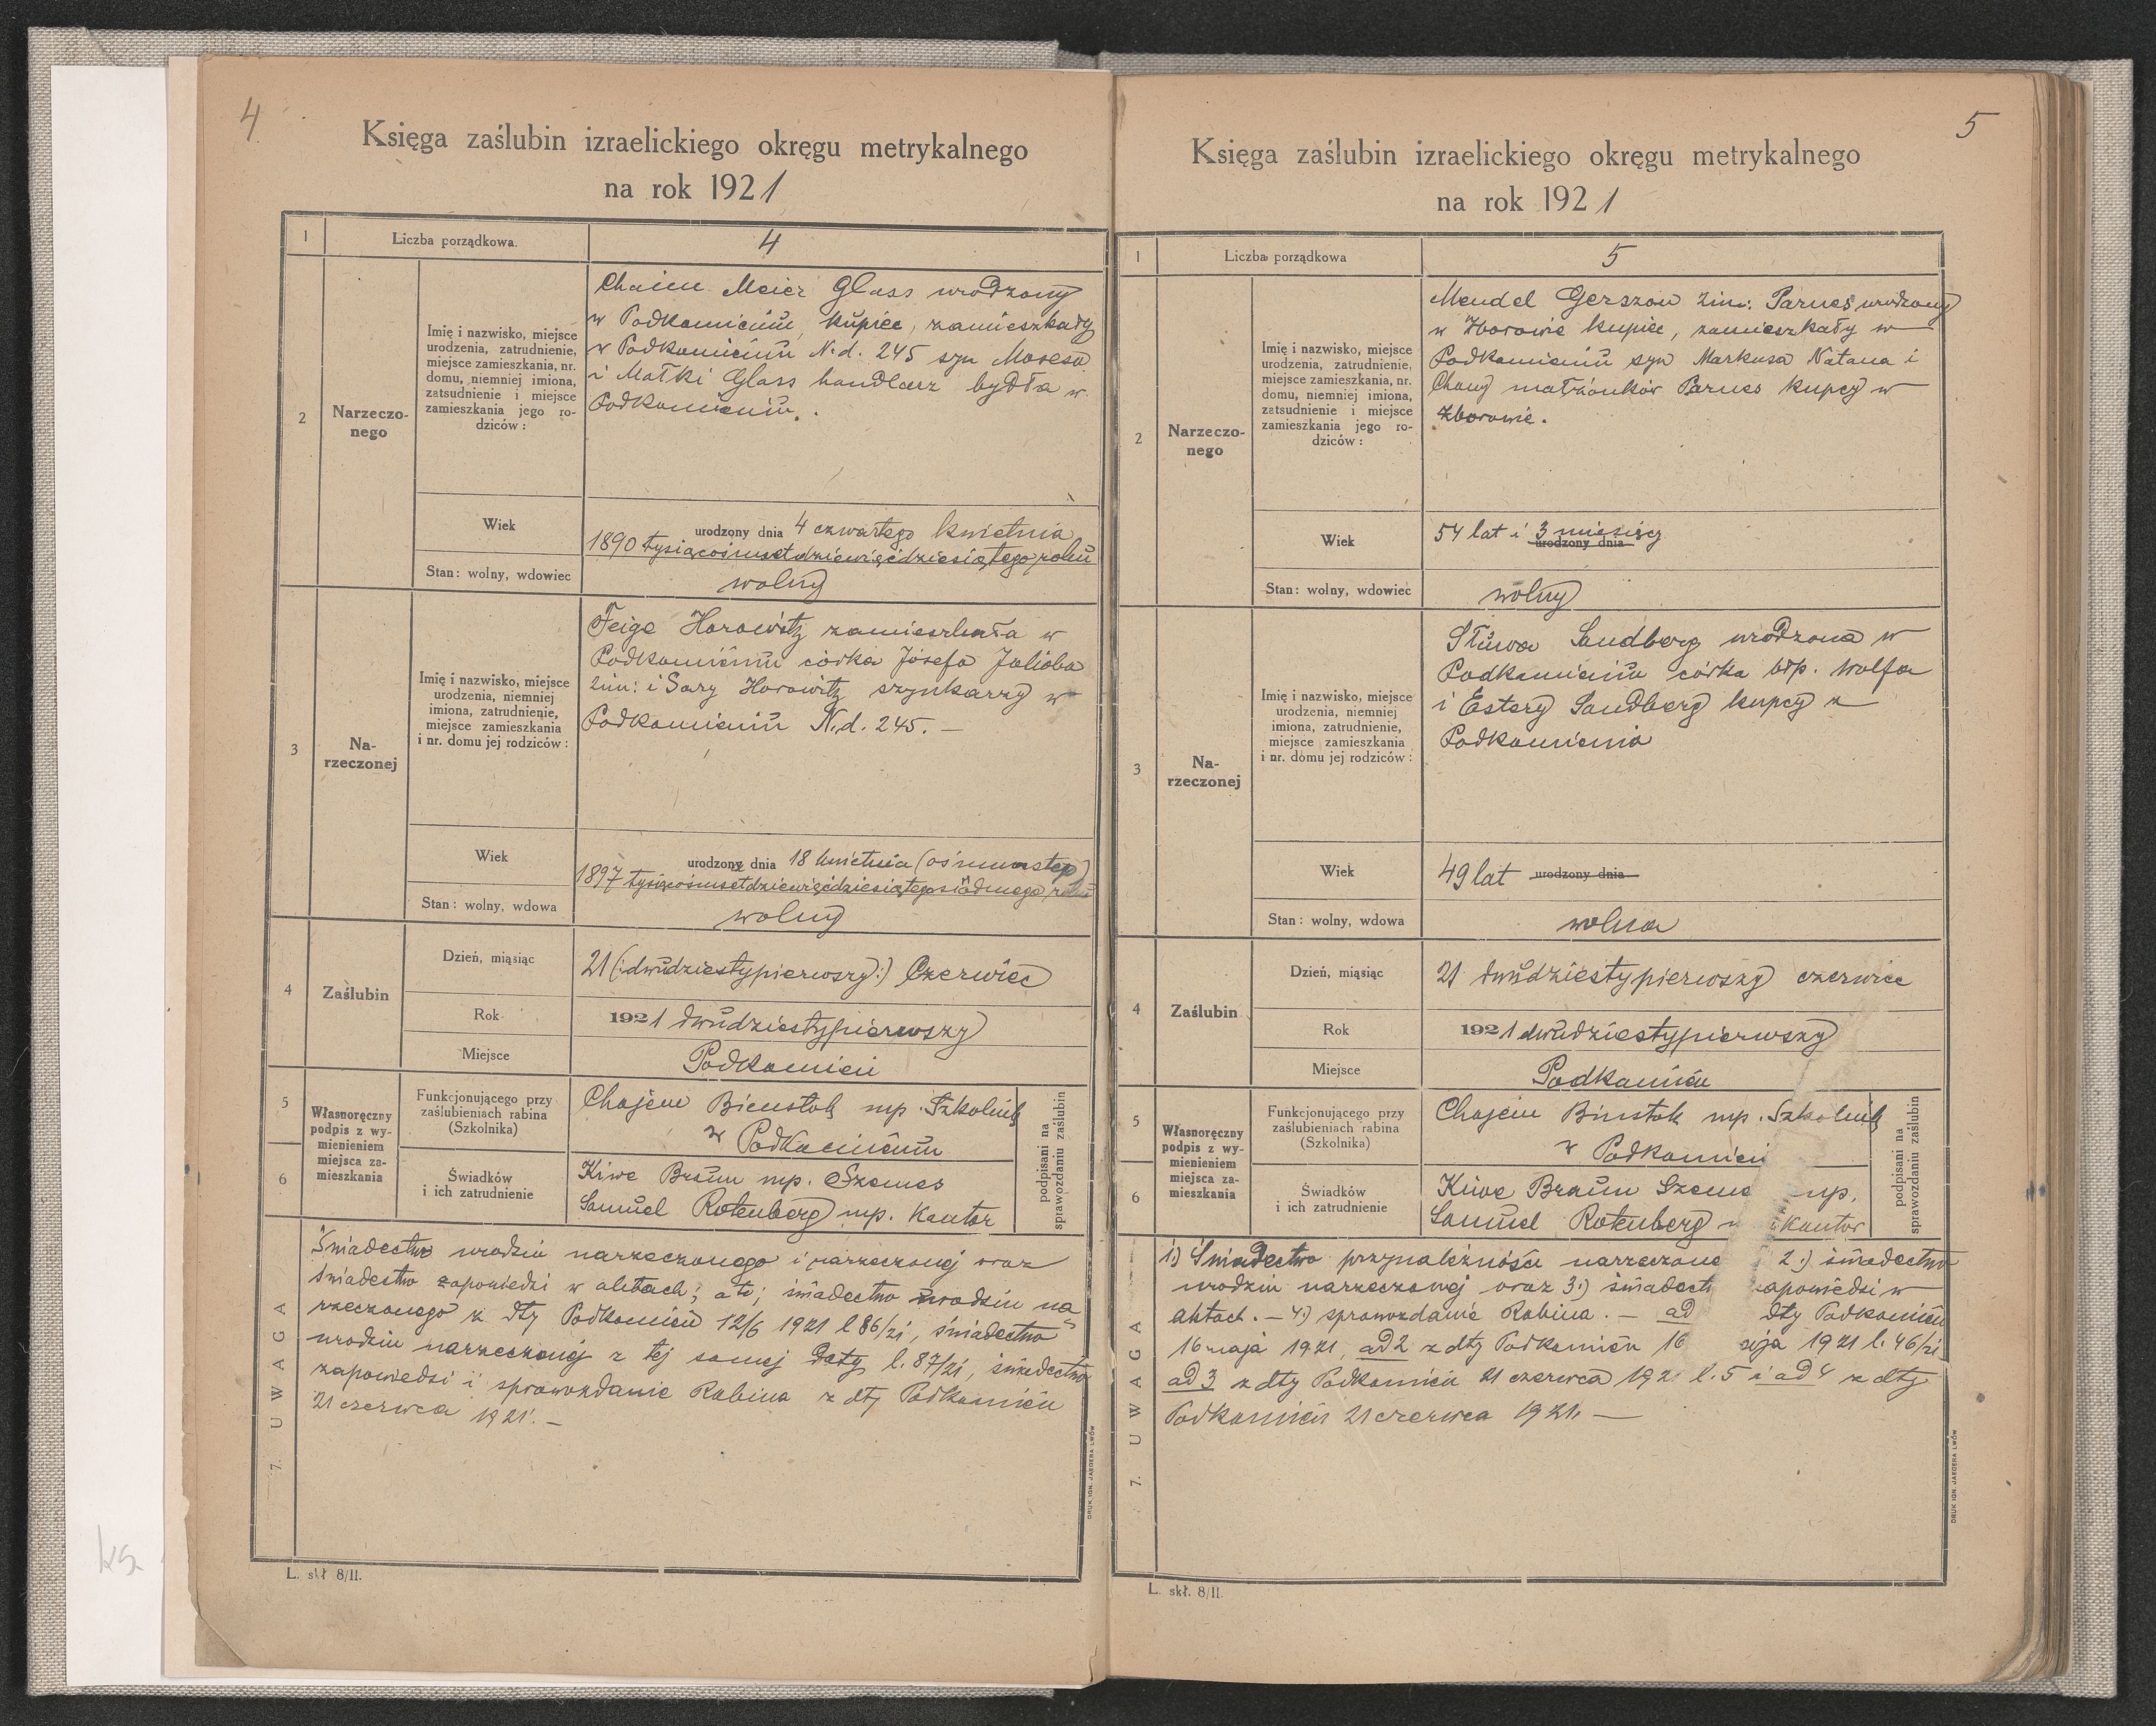 4
Księga zaślubin izraelickiego okręgu metrykalnego
na rok 1921
1
Liczba porządkowa.
4
2
Narzeczo-
nego
Imię i nazwisko, miejsce
urodzenia, zatrudnienie,
miejsce zamieszkania, nr.
domu, niemniej imiona,
zatsudnienie i miejsce
zamieszkania jego ro-
dziców :
Chaim Meier Glass urodzony
w Podkamieniu, kupiec, zamieszkały
w Podkamieniu N.d. 245 syn Mosesa
i Małki Glass handlarz bydła w
Podkamieniu.
Wiek
urodzony dnia 4 czwartego kwietnia
1890 tysiącośmsetdziewięćdziesiątego roku
Stan: wolny, wdowiec
wolny
3
Na-
rzeczonej
Imię i nazwisko, miejsce
urodzenia, niemniej
imiona, zatrudnienie,
miejsce zamieszkania
i nr. domu jej rodziców :
Feige Horowitz zamieszkała w
Podkamieniu córka Józefa Jakóba
2im: i Sary Horowitz szynkarzy w
Podkamieniu N.d. 245. —
Wiek
urodzony dnia 18 kwietnia (ośmnastego)
1897 tysiącośmsetdziewięćdziesiątegosiódmego roku
Stan: wolny, wdowa
wolny
4
Zaślubin
Dzień, miąsiąc
21 (:dwudziestypierwszy:) Czerwiec
Rok
1921 dwudziestypierwszy
Miejsce
Podkamień
5
6
Własnoręczny
podpis z wy-
mienieniem
miejsca za-
mieszkania
Funkcjonującego przy
zaślubieniach rabina
(Szkolnika)
Chajem Bienstok mp. Szkolnik
w Podkamieniu
Świadków
i ich zatrudnienie
Kiwe Braun mp. Szames
Samuel Rotenberg mp. Kantor
podpisani na
sprawozdaniu zaślubin
7. UWAGA
Świadectwo urodzin narzeczonego i narzeczonej oraz
świadectwo zapowiedzi w aktach; ato; świadectwo urodzin na=
rzeczonego z dty Podkamień 12/6 1921 l 86/21, świadectwo
urodzin narzeczonej z tej samej daty l. 87/21, świadectwo
zapowiedzi i sprawozdanie Rabina z dty Podkamień
21 czerwca 1921. —
DRUK IGN. JAEGERA LWÓW
L. skł 8/II.
5
Księga zaślubin izraelickiego okręgu metrykalnego
na rok 1921
1
Liczba porządkowa
5
2
Narzeczo-
nego
Imię i nazwisko, miejsce
urodzenia, zatrudnienie,
miejsce zamieszkania, nr.
domu, niemniej imiona,
zatsudnienie i miejsce
zamieszkania jego ro-
dziców :
Mendel Gerszon 2im: Parnes urodzony
w Zborowie kupiec, zamieszkały w
Podkamieniu syn Markusa Natana i
Chany małżonków Parnes kupcy w
Zborowie.
Wiek
54 lat i 3 miesięcy
urodzony dnia
Stan: wolny, wdowiec
wolny
3
Na-
rzeczonej
Imię i nazwisko, miejsce
urodzenia, niemniej
imiona, zatrudnienie,
miejsce zamieszkania
i nr. domu jej rodziców :
Sluwa Sandberg urodzona w
Podkamieniu córka błp. Wolfa
i Estery Sandberg kupcy z
Podkamienia
Wiek
49 lat urodzony dnia
Stan: wolny, wdowa
wolna
4
Zaślubin
Dzień, miąsiąc
21 dwudziestypierwszy czerwiec
Rok
1921 dwudziestypierwszy
Miejsce
Podkamień
5
6
Własnoręczny
podpis z wy-
mienieniem
miejsca za-
mieszkania
Funkcjonującego przy
zaślubieniach rabina
(Szkolnika)
Chajem Binstok mp. Szkolnik
w Podkamien
Świadków
i ich zatrudnienie
Kiwe Braun Szame mp.
Samuel Rotenberg Kantor
podpisani na
sprawozdaniu zaślubin
7. UWAGA
1.) Świadectwo przynależności narzeczone 2.) świadectwo
urodzin narzeczonej oraz 3.) świadect zapowiedzi w
aktach. — 4.) sprawozdanie Rabina. — ad dty Podkamień
16 maja 1921, ad 2 z dty Podkamień 16 aja 1921 l. 46/21
ad 3 z dty Podkamień 21 czerwca 192 l. 5 i ad 4 z dty
Podkamień 21 czerwca 1921. —
DRUK IGN. JAEGERA LWÓW
L. skł. 8/II.